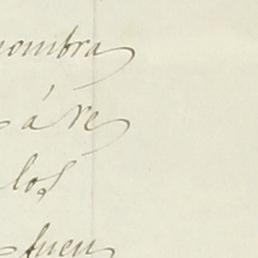 nombra
á re
los
fuen